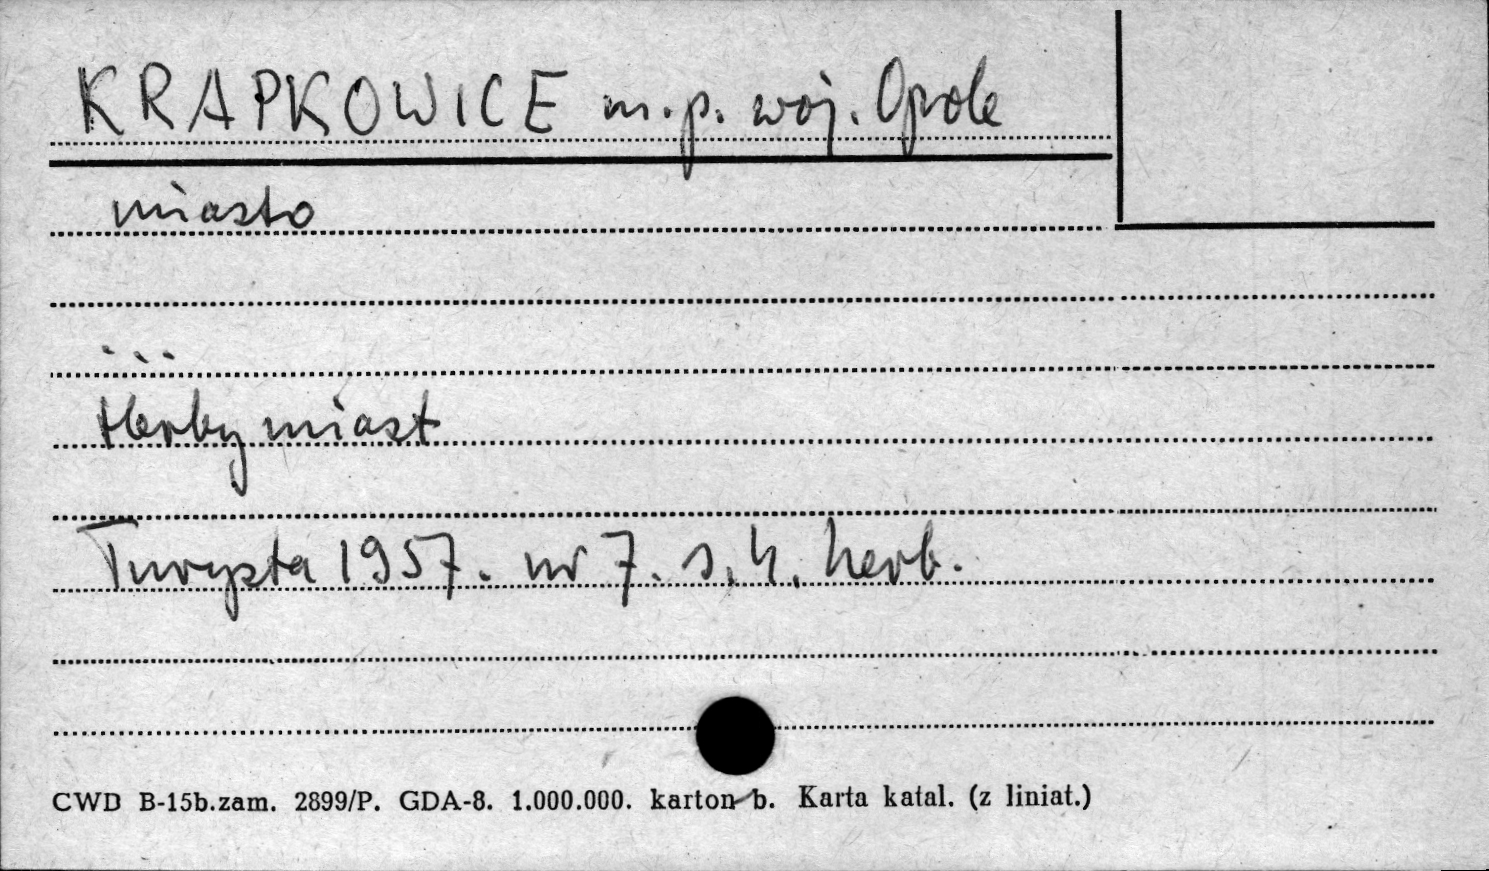 KRAPKOWICE m.p. woj. Opole
miasto
...
Herby miast
Turysta 1957. nr 7. s. 4. herb.
CWD B-15b.zam. 2899/P. GDA-8. 1.000.000. karton b. Karta katal. (z liniat.)